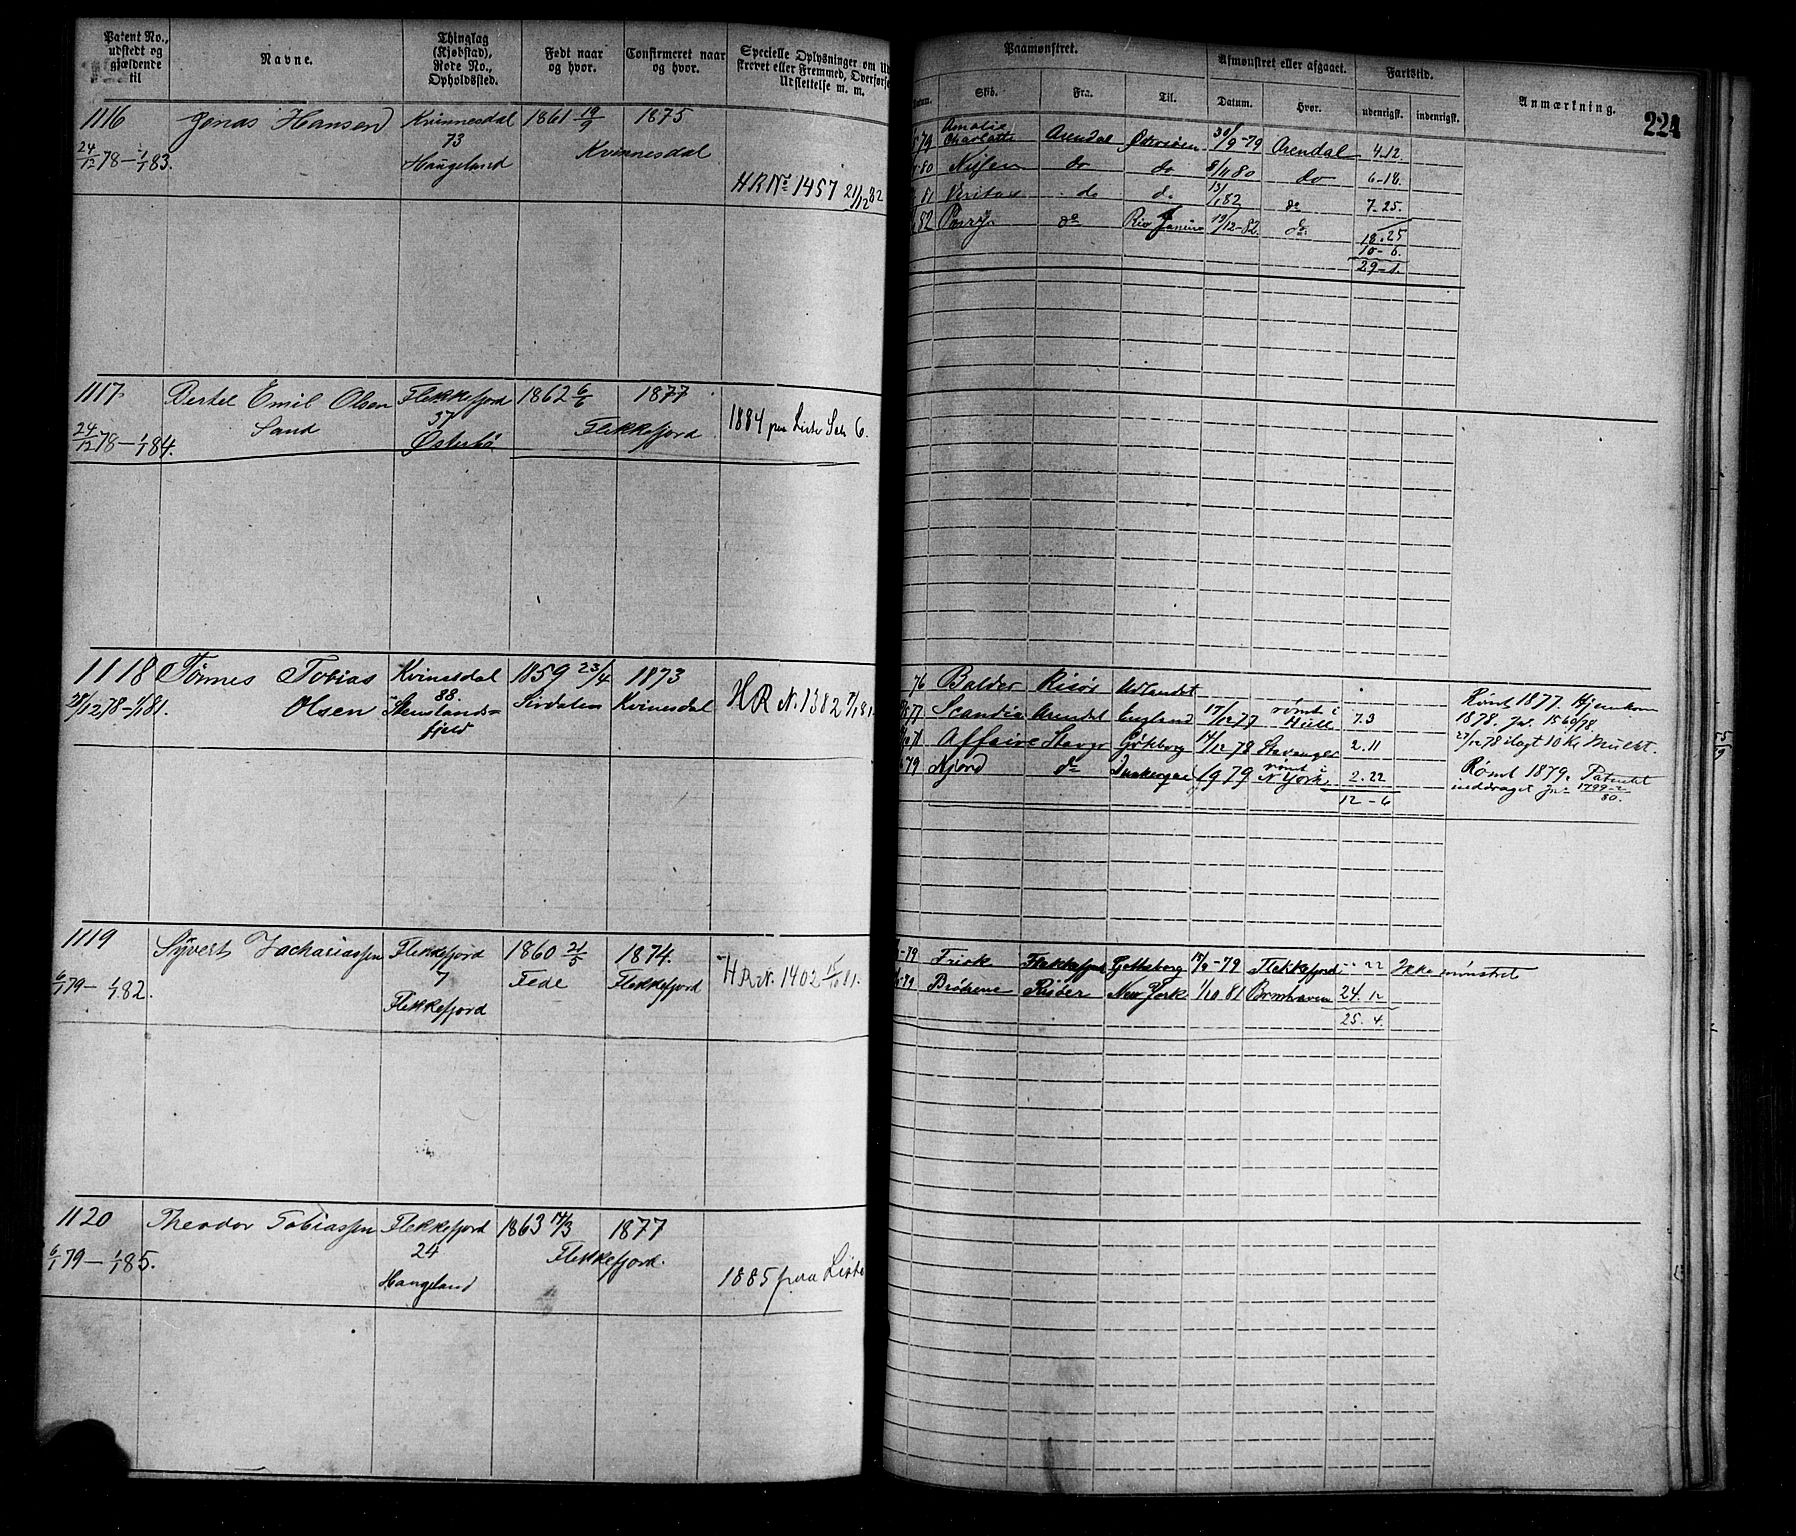 Patent No., udstedt og gjældende til
Navne.
Thinglag (Kjøbstad), Rode No., Opholdssted.
Født naar og hvor.
Confirmeret naar og hvor.
Specielle Oplysninger om Ud-
skrevet eller Fremmed, Overførse
Urslettelse m. m.
Paamønstret.
Afmønstret eller afgaaet.
Fartstid.
Anmærkning.
224
Datum.
Skib.
Fra.
Til.
Datum.
Hvor.
udenrigsk.
indenrigsk.
1116
Jonas Hansen
Kvinnesdal
1861 19/9
1875
24/12 78 — 1/1 83.
73
Haugeland
Kvinnesdal
HR No 1457 21/12 82
79 Amalie Charlotte Arendal Østersøen 30/9 -79 Arendal 4.12.
80 do do 8/11 80 do 6-18.
81 Veritas do do 13/1 82 do 7-25.
82 do Rio Janeiro 19/12-82. do
18.25
10-6.
29-1.
1117
Bertel Emil Olsen
Sand
Flekkefjord
37
Østerbø
1862 6/6
1877
Flekkefjord
24/12 78 — 1/1 84.
1884 paa Liste 6.
1118
Tønnes Tobias
Olsen
Kvinesdal
88.
Stenslands-
fjeld
1859 23/4
Sirdalen
1873
Kvinesdal
28/12 78 — 1/1 81.
HR N. 1382 7/1 81
76 Balder Risør Udlandet
77 Scandia Arendal England 17/12 77 rømt i Hull 7.3
78 Affaire Stavgr Gøteborg 14/12 78 Stavanger 2.11
79 Njord do 1979 rømt i N York. 2.22
12-6
Rømt 1877. Hjemkom
1878. Jr. 1560/78.
27/12 78 ilagt 10 Kr Mulkt.
Rømt 1879. Patentet
inddraget Jr. 1799-2/80.
1119
Syvert Zachariassen
Flekkefjord
7
Flekkefjord
1860 21/5
Fede
1874.
Flekkefjord
6/1 79 — 1/1 82.
HR N. 1402 15/10 81.
-79 Frisk Flekkefjord Gotteborg 17/9 -79 Flekkefjord .. 22 Ikke mønstret
79 Brødrene Risøer New York 1/10 81 Bremhaven 24. 12
25. 4.
1120
Theodor Tobiassen
Flekkefjord
24
Haugeland
1863 14/3
1877
Flekkefjord.
6/1 79 — 1/1 85.
1885 paa Liste